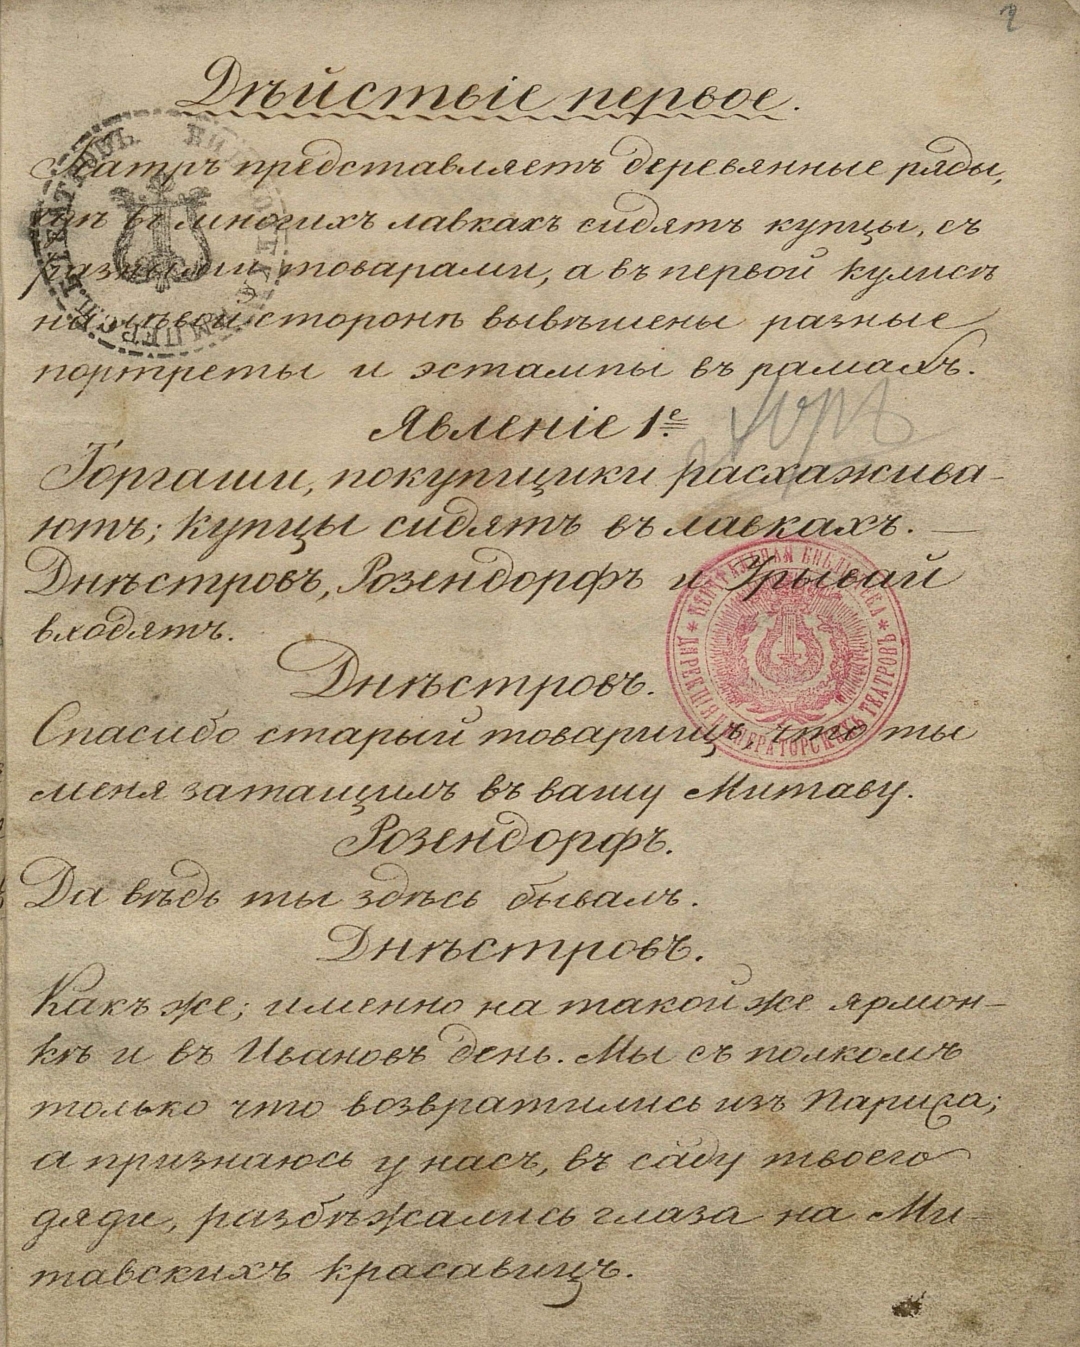 2
Дѣйствіе первое.
Театръ представляетъ деревянные ряды,
въ многихъ лавкахъ сидятъ купцы, съ
разными товарами, а въ первой кулисѣ
на лѣвой сторонѣ вывѣшены разные
портреты и эстампы въ рамахъ.
Явленіе 1е.
Хоръ
Торгаши, покупщики расхажива-
ютъ; купцы сидятъ въ лавкахъ. —
Днѣстровъ, Розендорфъ и Угрывай
входятъ.
Днѣстровъ.
Спасибо старый товарищъ, что ты
меня затащилъ въ вашу Митаву.
Розендорфъ.
Да вѣдь ты здѣсь бывалъ.
Днѣстровъ.
Какъ же; именно на такой же ярмон-
кѣ и въ Ивановъ день. Мы съ полкомъ
только что возвратились изъ Парижа;
а признаюсь у насъ, въ саду твоего
дяди, разбѣжались глаза на Ми-
тавскихъ красавицъ.
ЦЕНТРАЛЬНАЯ БИБЛІОТЕКА
ДИРЕКЦІЯ ИМПЕРАТОРСКИХЪ ТЕАТРОВЪ